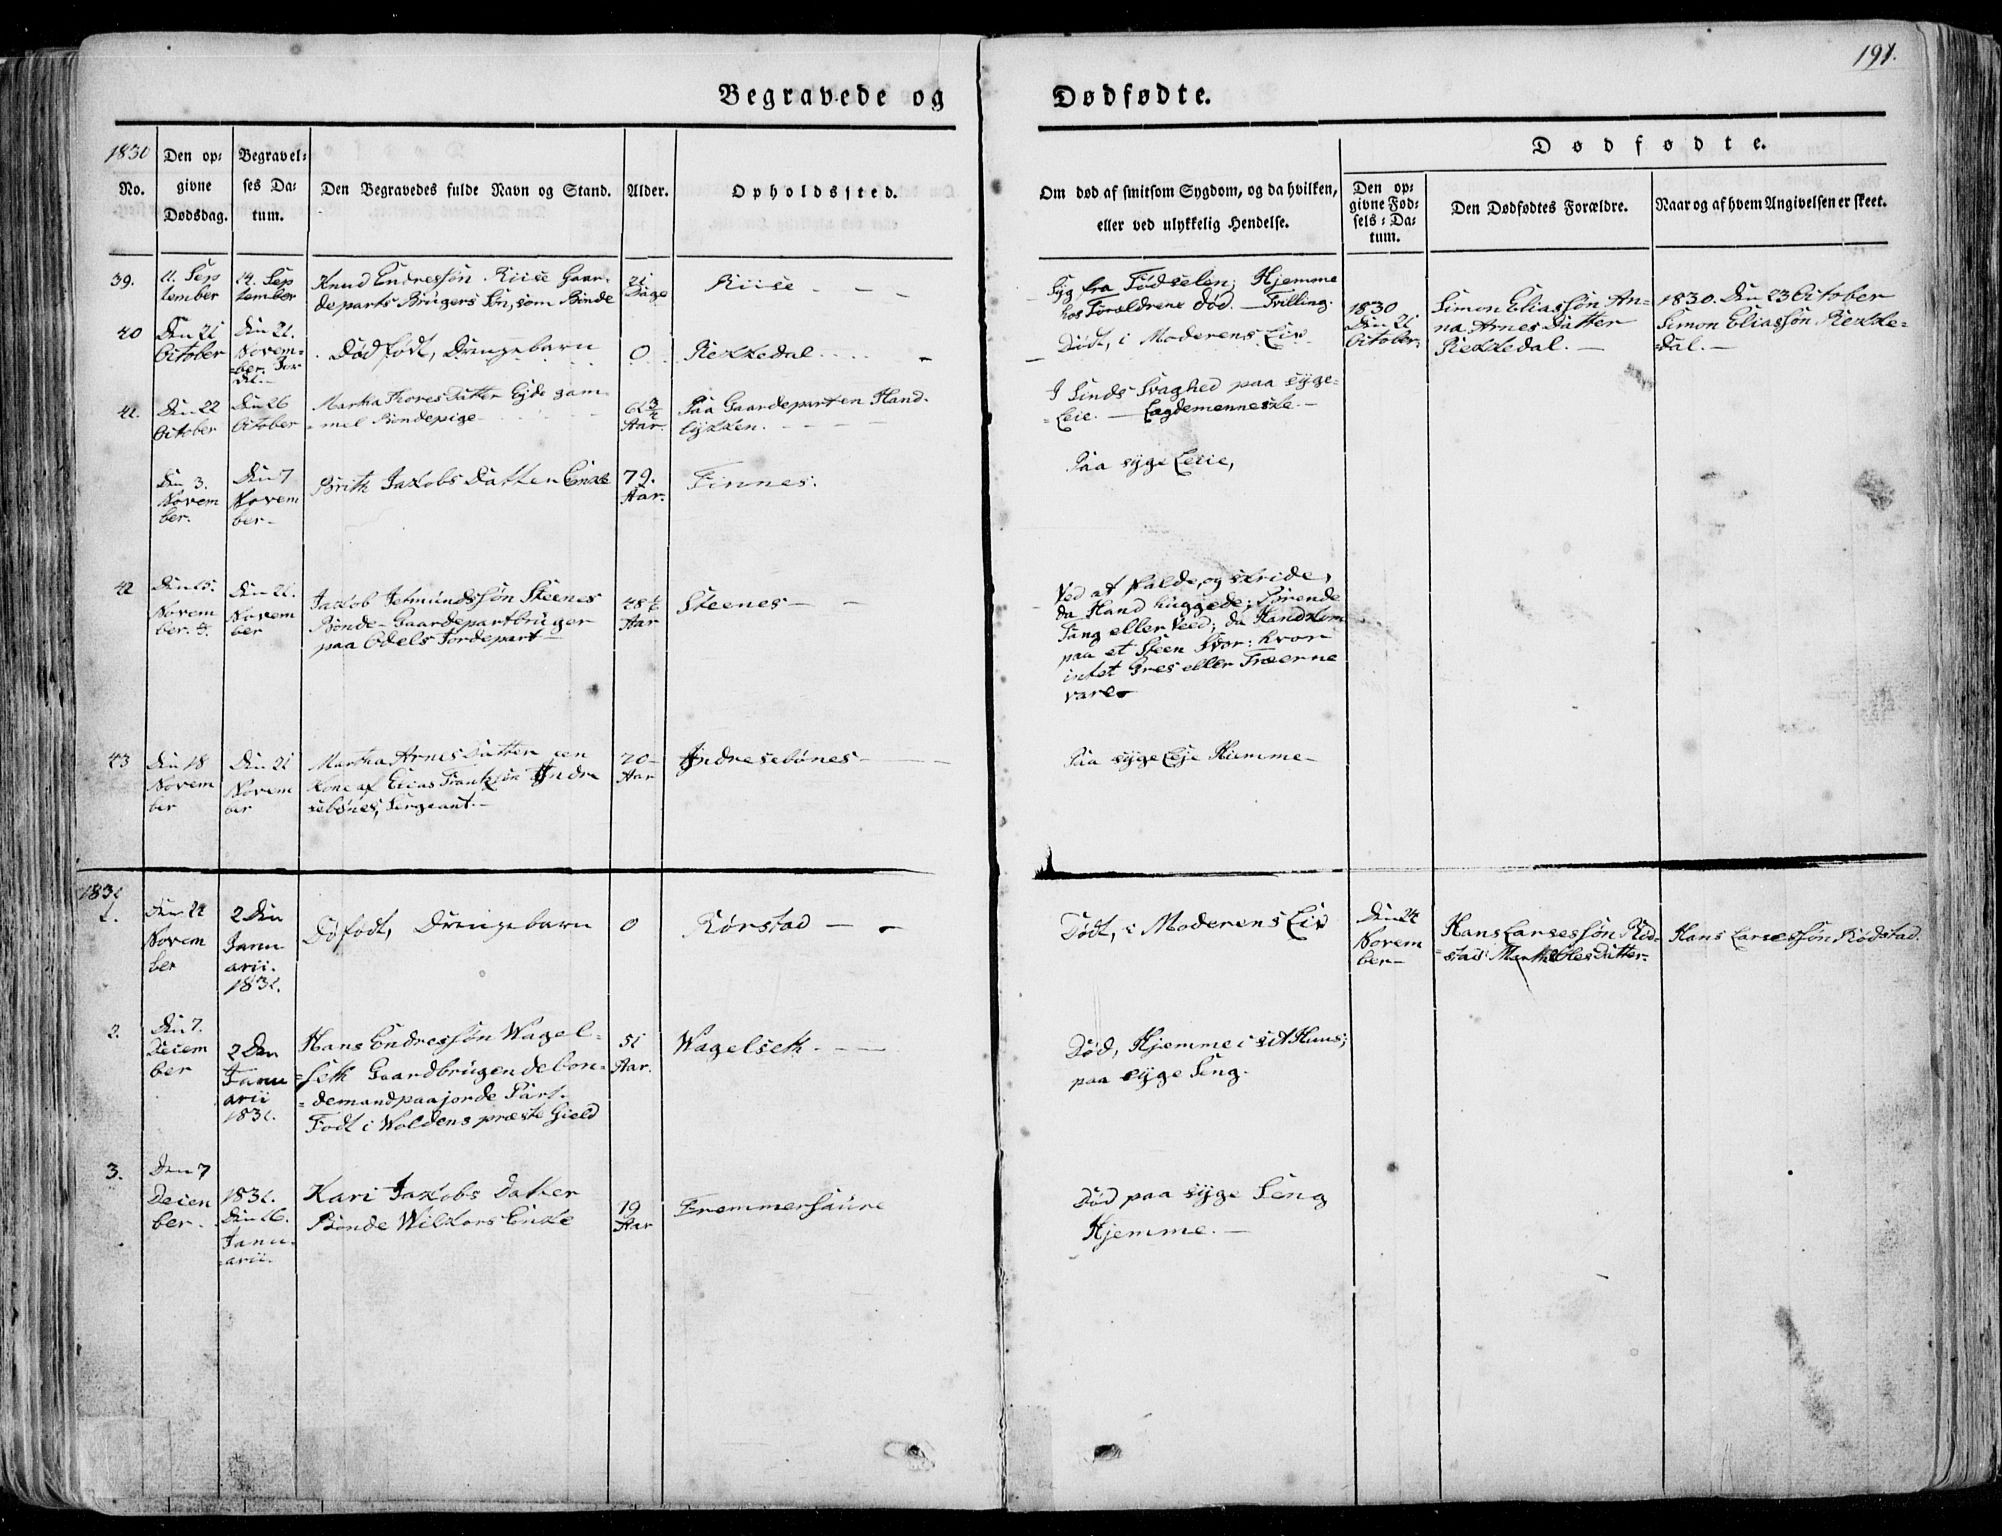 191.
Begravede og Dødfødte.
1830
No.
Den op-
givne
Dødsdag.
Begravel-
ses Da-
tum.
Den Begravedes fulde Navn og Stand.
Alder.
Opholdssted.
Om død af smitsom Sygdom, og da hvilken,
eller ved ulykkelig Hendelse.
Dødfødte.
Den op-
givne Fød-
sels-Da-
tum.
Den Dødfødtes Forældre.
Naar og af hvem Angivelsen er skeet.
39.
11. Sep
tember
14. Sep
tember
Knud Endressøn Riise Gaar-
de parts Brugers Søn, som Bønde
21
Dage
Riise
Syg fra Fødselen; Hjemme
hos Forældrene død. Tvilling.
40
Den 21
October
Den 21.
Novem-
ber.
Død født, Drengebarn
0
Rekkedal
Dødt, i Moderens Liv
1830
Den 21
October.
Simon Eliassøn An-
na Arnes Datter
Rekkedal.
1830. Den 23 October
Simon Eliassøn Rekke-
dal.
41.
Den 22
October
Den 26
October
Martha Thores Datter Eyde gam-
mel Bondepige
61 3/4
Aar.
Paa Gaardeparten Hand-
lykken.
I Sinds Svaghed paa syge-
Leie. Lægdemenneske
Den 3.
Novem
ber.
Den 7
Novem
ber
Brith Jakobs Datter Enke
79.
Aar.
Finnes.
Paa syge Leiie,
42
Den 15.
Novem
ber.
Den 21.
Novem
ber
Jakob Jetmundssøn Steenes
Bonde-Gaardepartbruger
paa Odels Jordepart
48 1/2
Aar
Steenes
Ved at falde, og skride,
da Hand huggede; Sørende
Tang eller Veed; da Hand kom
paa et Steen hvor
intet Gres eller Træerne
vare
43
Den 18
Novem
ber
Den 21
Novem
ber
Martha Arnes Datter een
Kone af Elias Frankssøn Indre
sebønes, Sergeant.
70
Aar
Indresebønes
Paa syge Leje Hiemme
1831
1.
Den 24
Novem
ber
2 Den
Janu
arii.
1831.
Døfødt, Drengebarn
0
Rørstad
Dødt, i Moderens Liv
Den 24
Novem
ber
Hans Larsessøn Rød-
stad Marthe Oles Datter
Hans Larsessøn Rødstad.
2.
Den 7.
Decem
ber
2 Den
Janu
arii
1831.
Hans Endressøn Wagel-
seth Gaardbrugende bon-
demand paa jorde Part.
Født i Woldens præste Gield
51
Aar.
Wagelseth
Død, Hjemme i sit Huus;
paa syge Seng.
3.
Den 7
Decem
ber.
1831.
Den 16.
Janu-
arii.
Kari Jakobs Datter
Bonde Wilkors Enke
79
Aar
Fremmersaure
Død paa syge Seng
Hjemme.